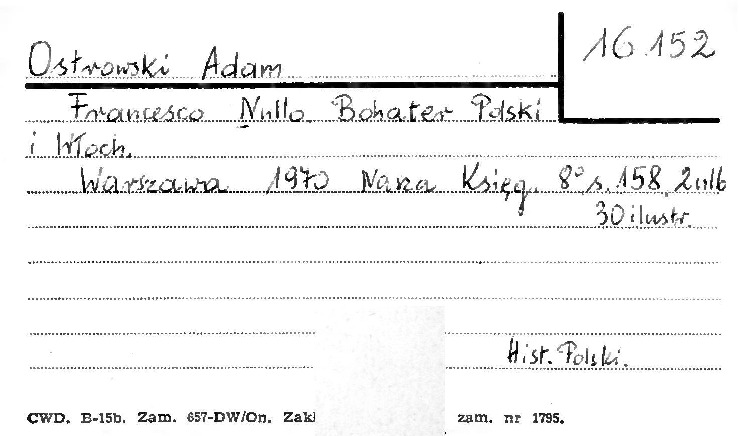 Ostrowski Adam
16 152
Francesco Nullo. Bohater Polski
i Włoch.
Warszawa 1970 Nasza Księg. 8° s. 158, 2 nlb
30 ilustr.
Hist. Polski.
CWD. B-15b. Zam. 657-DW/On. Zakł zam. nr 1795.